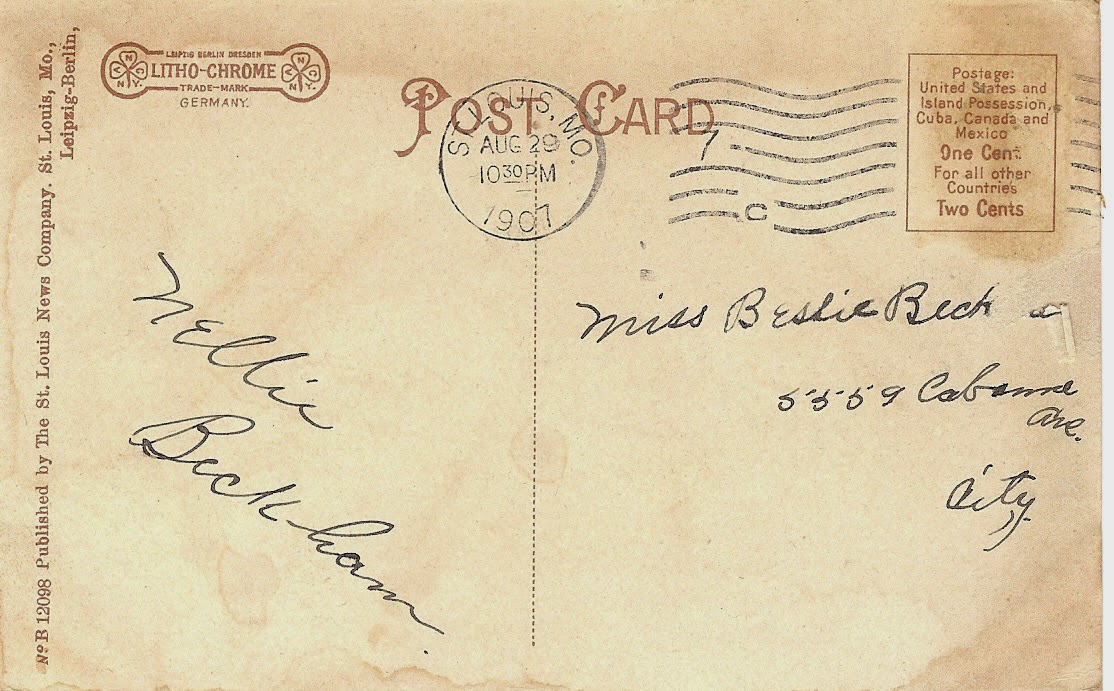 No B 12098 Published by The St. Louis News Company. St. Louis, Mo.,
Leipzig-Berlin,
LEIPZIG BERLIN DRESDEN
LITHO-CHROME
TRADE-MARK
GERMANY.
N Y.
C
POST CARD
ST. LOUIS, MO.
AUG 29
10 30 PM
1907
7
C
Postage:
United States and
Island Possession,
Cuba, Canada and
Mexico
One Cent
For all other
Countries
Two Cents
Nellie
Beckham.
Miss Bessie Beck
5559 Cabanne
Ave.
City.